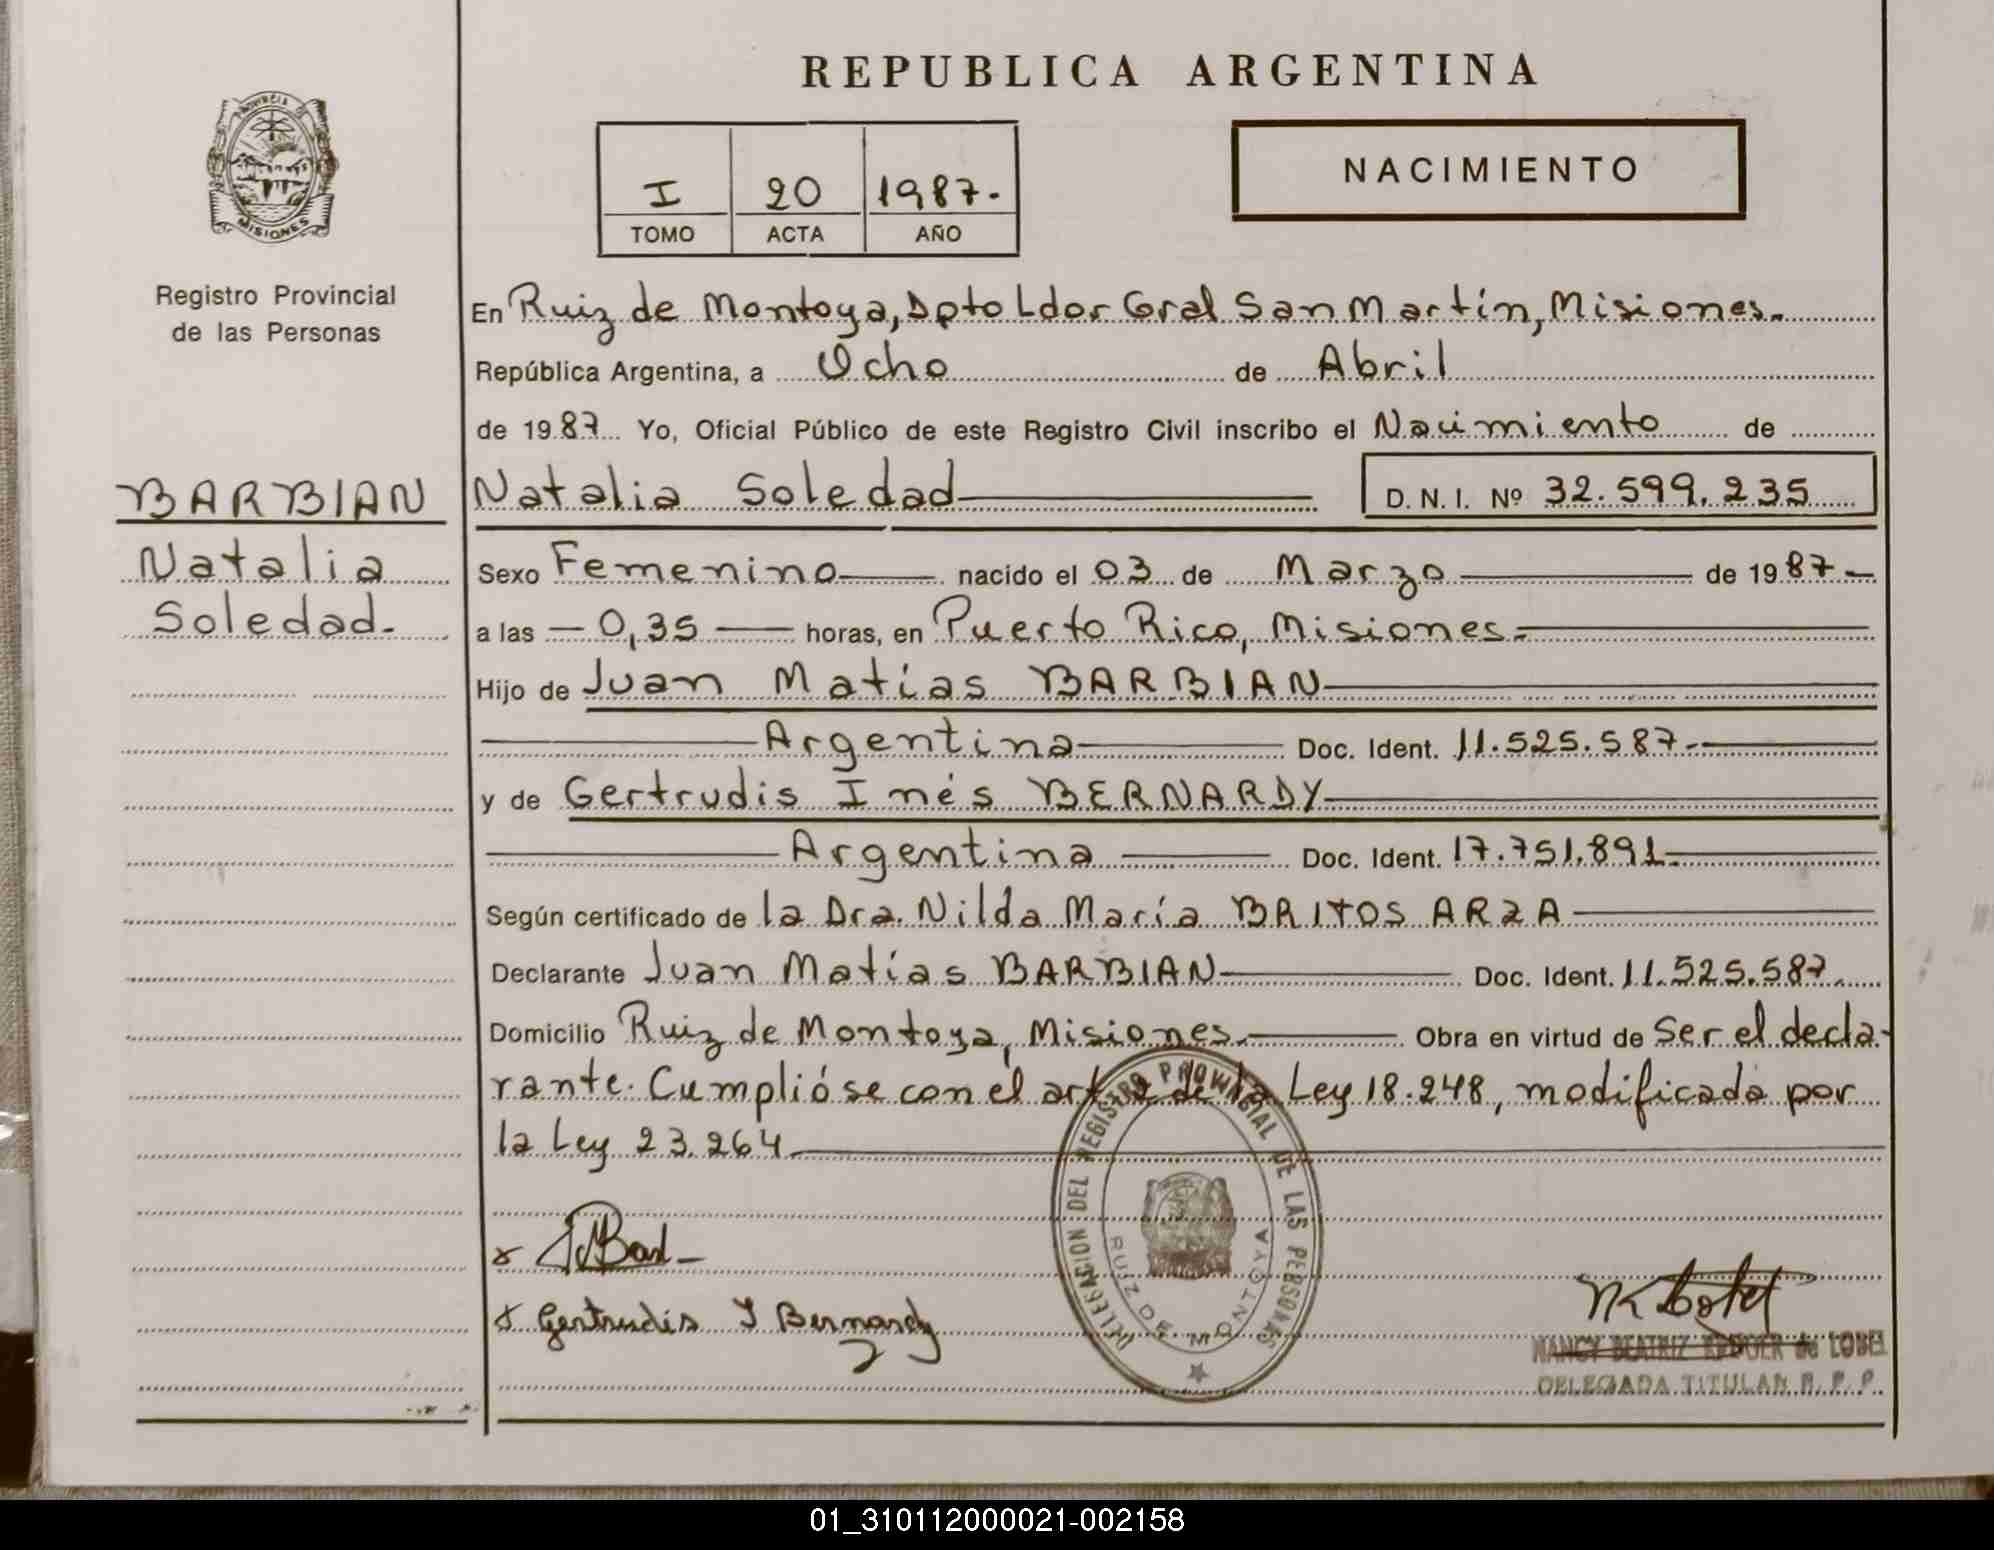 REPUBLICA ARGENTINA
PROVINCIA DE MISIONES
Registro Provincial
de las Personas
I 20 1987.
TOMO ACTA AÑO
NACIMIENTO
En Ruiz de Montoya, Dpto Ldor Gral San Martín, Misiones.
República Argentina, a Ocho de Abril
de 1987 Yo, Oficial Público de este Registro Civil inscribo el Nacimiento de
BARBIAN
Natalia
Soledad.
Natalia Soledad D. N. I. Nº 32.599.235
Sexo Femenino nacido el 03 de Marzo de 1987
a las 0,35 horas, en Puerto Rico, Misiones.
Hijo de Juan Matías BARBIAN
Argentina Doc. Ident. 11.525.587.
y de Gertrudis Inés BERNARDY
Argentina Doc. Ident. 17.751.891
Según certificado de la Dra. Nilda María BRITOS ARZA
Declarante Juan Matías BARBIAN Doc. Ident. 11.525.587.
Domicilio Ruiz de Montoya, Misiones. Obra en virtud de Ser el decla-
rante. Cumplióse con el art 2 de la Ley 18.248, modificada por
la Ley 23.264
DELEGACION DEL REGISTRO PROVINCIAL DE LAS PERSONAS
RUIZ DE MONTOYA
Gertrudis I Bernardy
NANCY BEATRIZ de LOBEL
DELEGADA TITULAR R. P. P.
01_310112000021-002158